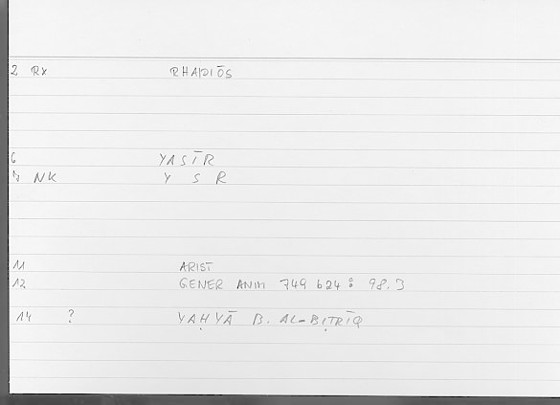 2 RX RHAIDIŌS
6 YASĪR
7 NK Y S R
11 ARIST
12 GENER ANIM 749 b24 : 98.3
14 ? YAḤYĀ B. AL-BIṬRĪQ